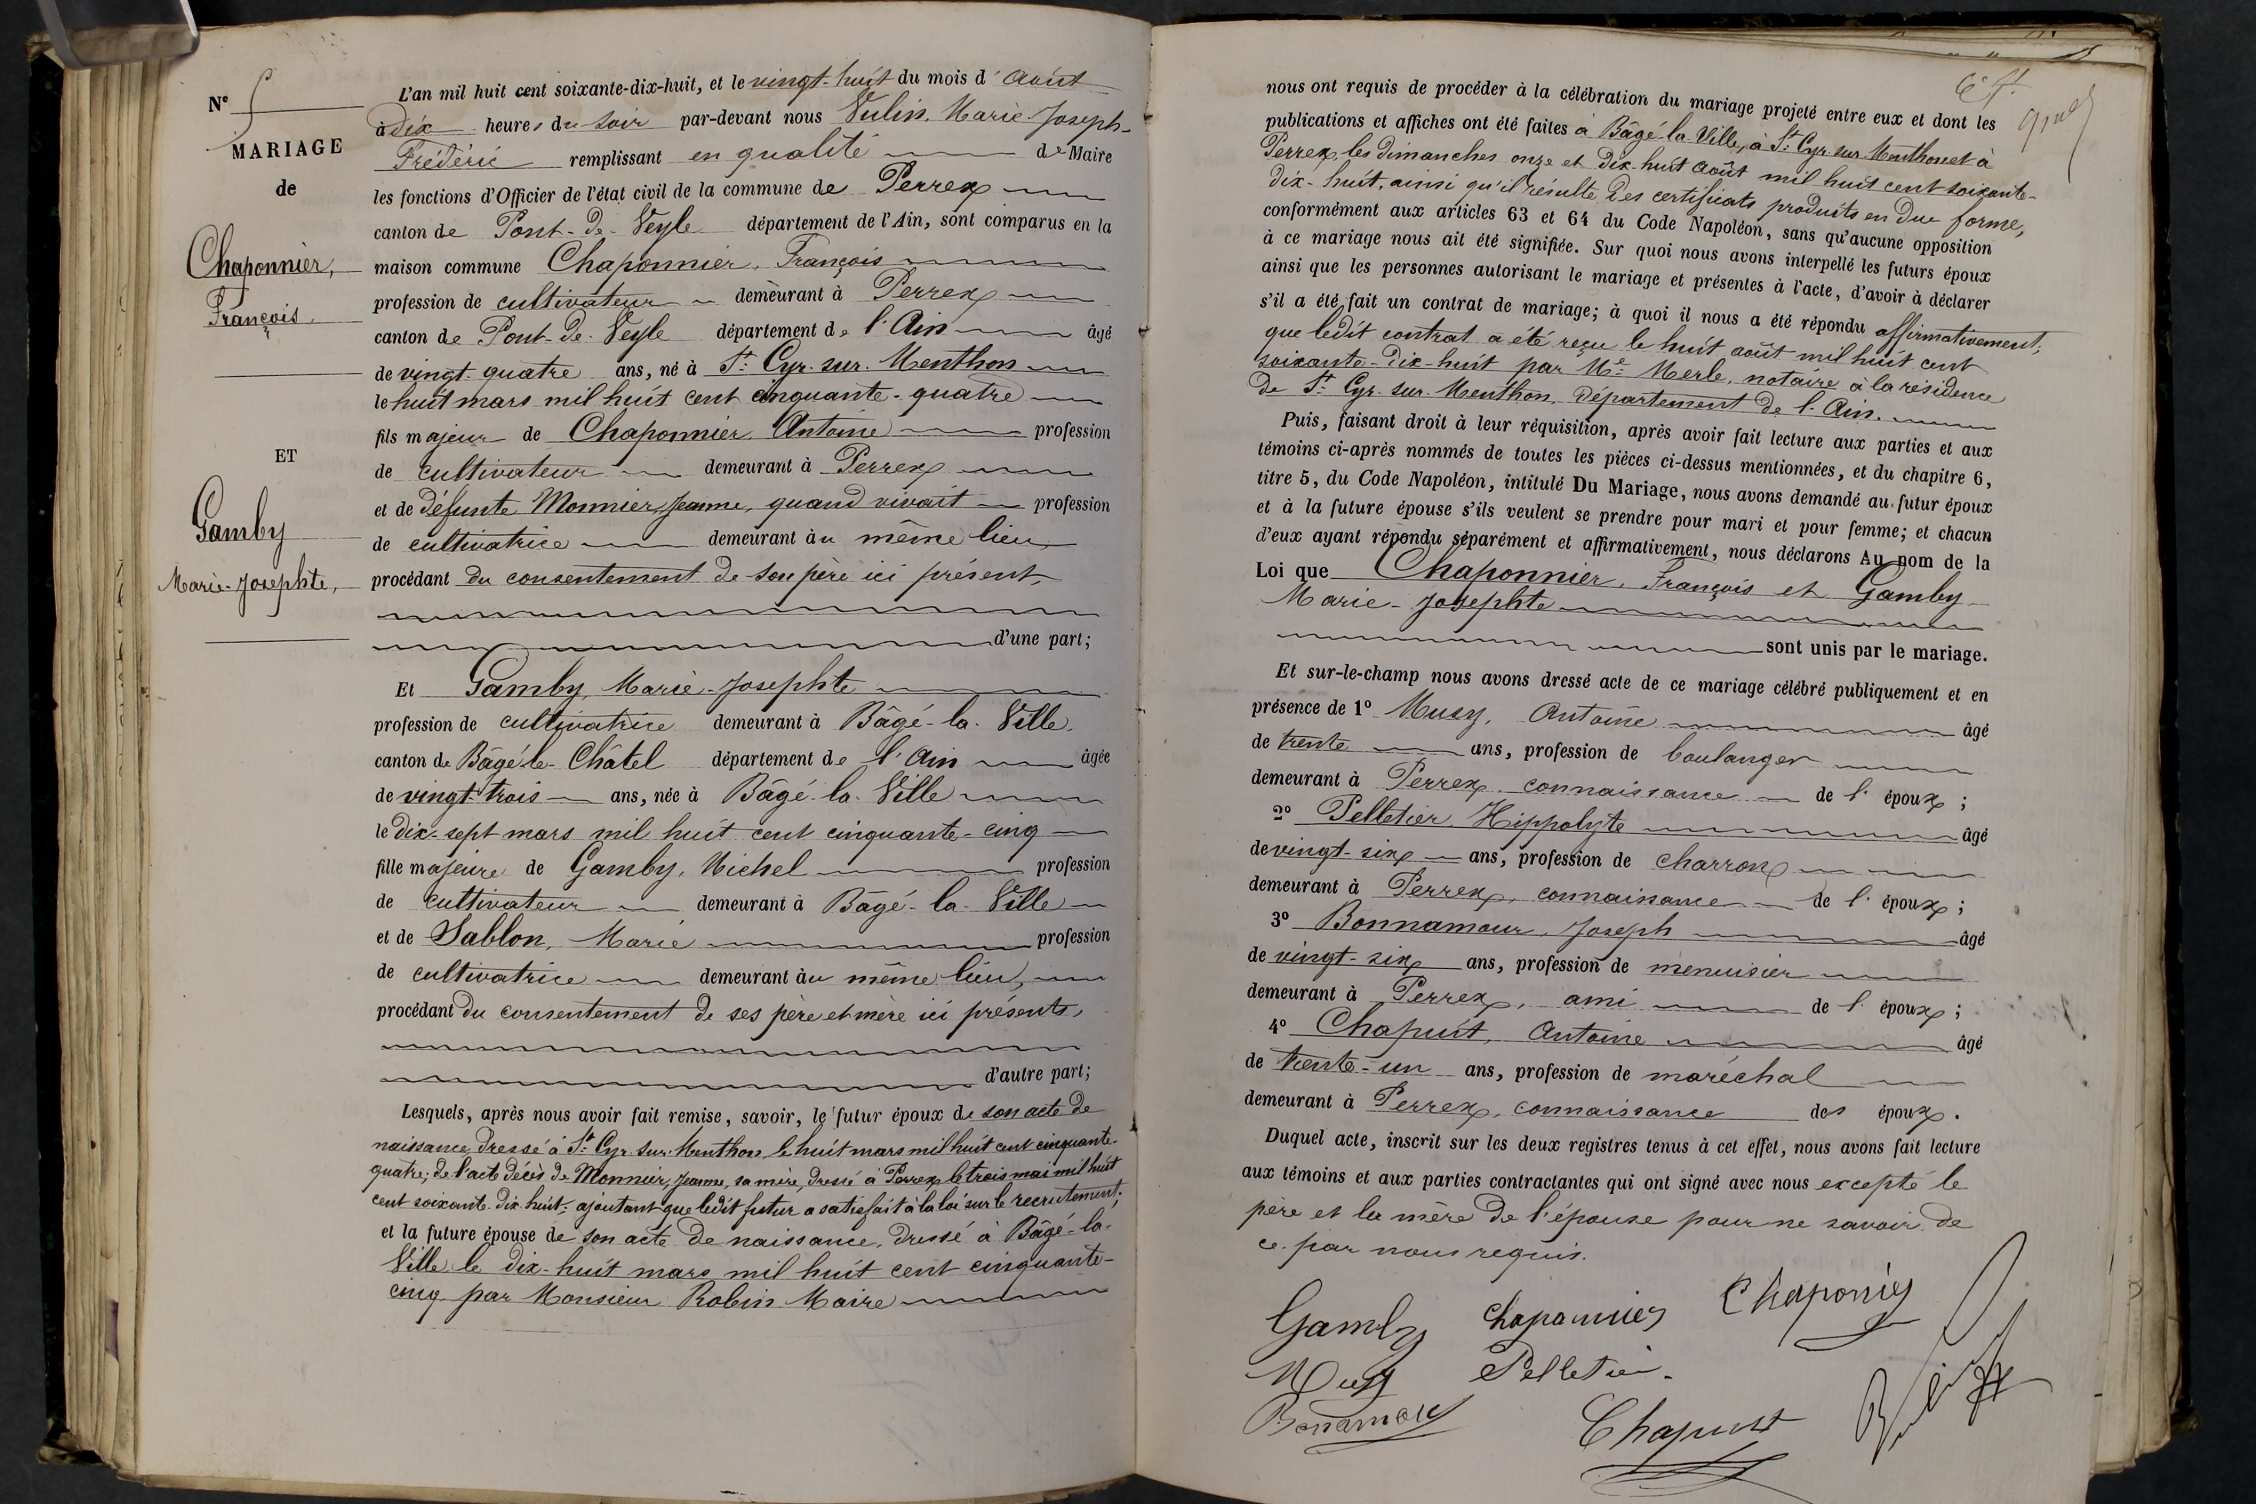 N° 5
MARIAGE
de
Chaponnier,
François
ET
Gamby
Marie-Josephte,
L'an mil huit cent soixante-dix-huit, et le vingt-huit du mois d'Août
à Dix heures du soir par-devant nous Vulin, Marie-Joseph-
Frédéric remplissant en qualité de Maire
les fonctions d'Officier de l'état civil de la commune de Perrex
canton de Pont-de-Veyle département de l'Ain, sont comparus en la
maison commune Chaponnier, François
profession de cultivateur demeurant à Perrex
canton de Pont-de-Veyle département de l'Ain âgé
de vingt-quatre ans, né à St. Cyr-sur-Menthon
le huit mars mil huit cent cinquante-quatre
fils majeur de Chaponnier, Antoine profession
de cultivateur demeurant à Perrex
et de défunte Monnier, Jeanne, quand vivait profession
de cultivatrice demeurant au même lieu,
procédant du consentement de son père ici présent,
d'une part;
Et Gamby, Marie-Josephte
profession de cultivatrice demeurant à Bâgé-la-Ville,
canton de Bâgé-le-Châtel département de l'Ain âgée
de vingt-trois ans, née à Bâgé-la-Ville
le dix-sept mars mil huit cent cinquante-cinq
fille majeure de Gamby, Michel profession
de cultivateur demeurant à Bâgé-la-Ville
et de Sablon, Marie profession
de cultivatrice demeurant au même lieu,
procédant du consentement de ses père et mère ici présents,
d'autre part;
Lesquels, après nous avoir fait remise, savoir, le futur époux de son acte de
naissance, dressé à St. Cyr-sur-Menthon le huit mars mil huit cent cinquante-
quatre; de l'acte décès de Monnier, Jeanne, sa mère, dressé à Perrex le trois mai mil huit
cent soixante-dix-huit; ajoutant que ledit futur a satisfait à la loi sur le recrutement;
et la future épouse de son acte de naissance, dressé à Bâgé-la-
Ville le dix-huit mars mil huit cent cinquante-
cinq par Monsieur Robin Maire
nous ont requis de procéder à la célébration du mariage projeté entre eux et dont les
publications et affiches ont été faites à Bâgé-la-Ville, à St. Cyr-sur-Menthon et à
Perrex, les dimanches onze et dix-huit août mil huit cent soixante-
dix-huit, ainsi qu'il résulte des certificats produits en due forme,
conformément aux articles 63 et 64 du Code Napoléon, sans qu'aucune opposition
à ce mariage nous ait été signifiée. Sur quoi nous avons interpellé les futurs époux
ainsi que les personnes autorisant le mariage et présentes à l'acte, d'avoir à déclarer
s'il a été fait un contrat de mariage; à quoi il nous a été répondu affirmativement;
que ledit contrat a été reçu le huit août mil huit cent
soixante-dix-huit par Me. Merle, notaire à la résidence
de St. Cyr-sur-Menthon, département de l'Ain.
Puis, faisant droit à leur réquisition, après avoir fait lecture aux parties et aux
témoins ci-après nommés de toutes les pièces ci-dessus mentionnées, et du chapitre 6,
titre 5, du Code Napoléon, intitulé Du Mariage, nous avons demandé au futur époux
et à la future épouse s'ils veulent se prendre pour mari et pour femme; et chacun
d'eux ayant répondu séparément et affirmativement, nous déclarons Au nom de la
Loi que Chaponnier, François et Gamby
Marie-Josephte
sont unis par le mariage.
Et sur-le-champ nous avons dressé acte de ce mariage célébré publiquement et en
présence de 1° Musy, Antoine âgé
de trente ans, profession de boulanger
demeurant à Perrex, connaissance de l'époux;
2° Pelletier, Hippolyte âgé
de vingt-six ans, profession de charron
demeurant à Perrex, connaissance de l'époux;
3° Bonnamour, Joseph âgé
de vingt-six ans, profession de menuisier
demeurant à Perrex, ami de l'époux;
4° Chapuit, Antoine âgé
de trente-un ans, profession de maréchal
demeurant à Perrex, connaissance des époux.
Duquel acte, inscrit sur les deux registres tenus à cet effet, nous avons fait lecture
aux témoins et aux parties contractantes qui ont signé avec nous excepté le
père et la mère de l'épouse pour ne savoir de
ce par nous requis.
Gamby Chaponnier Chaponier
Musy Pelletier
Bonamour Chapuit